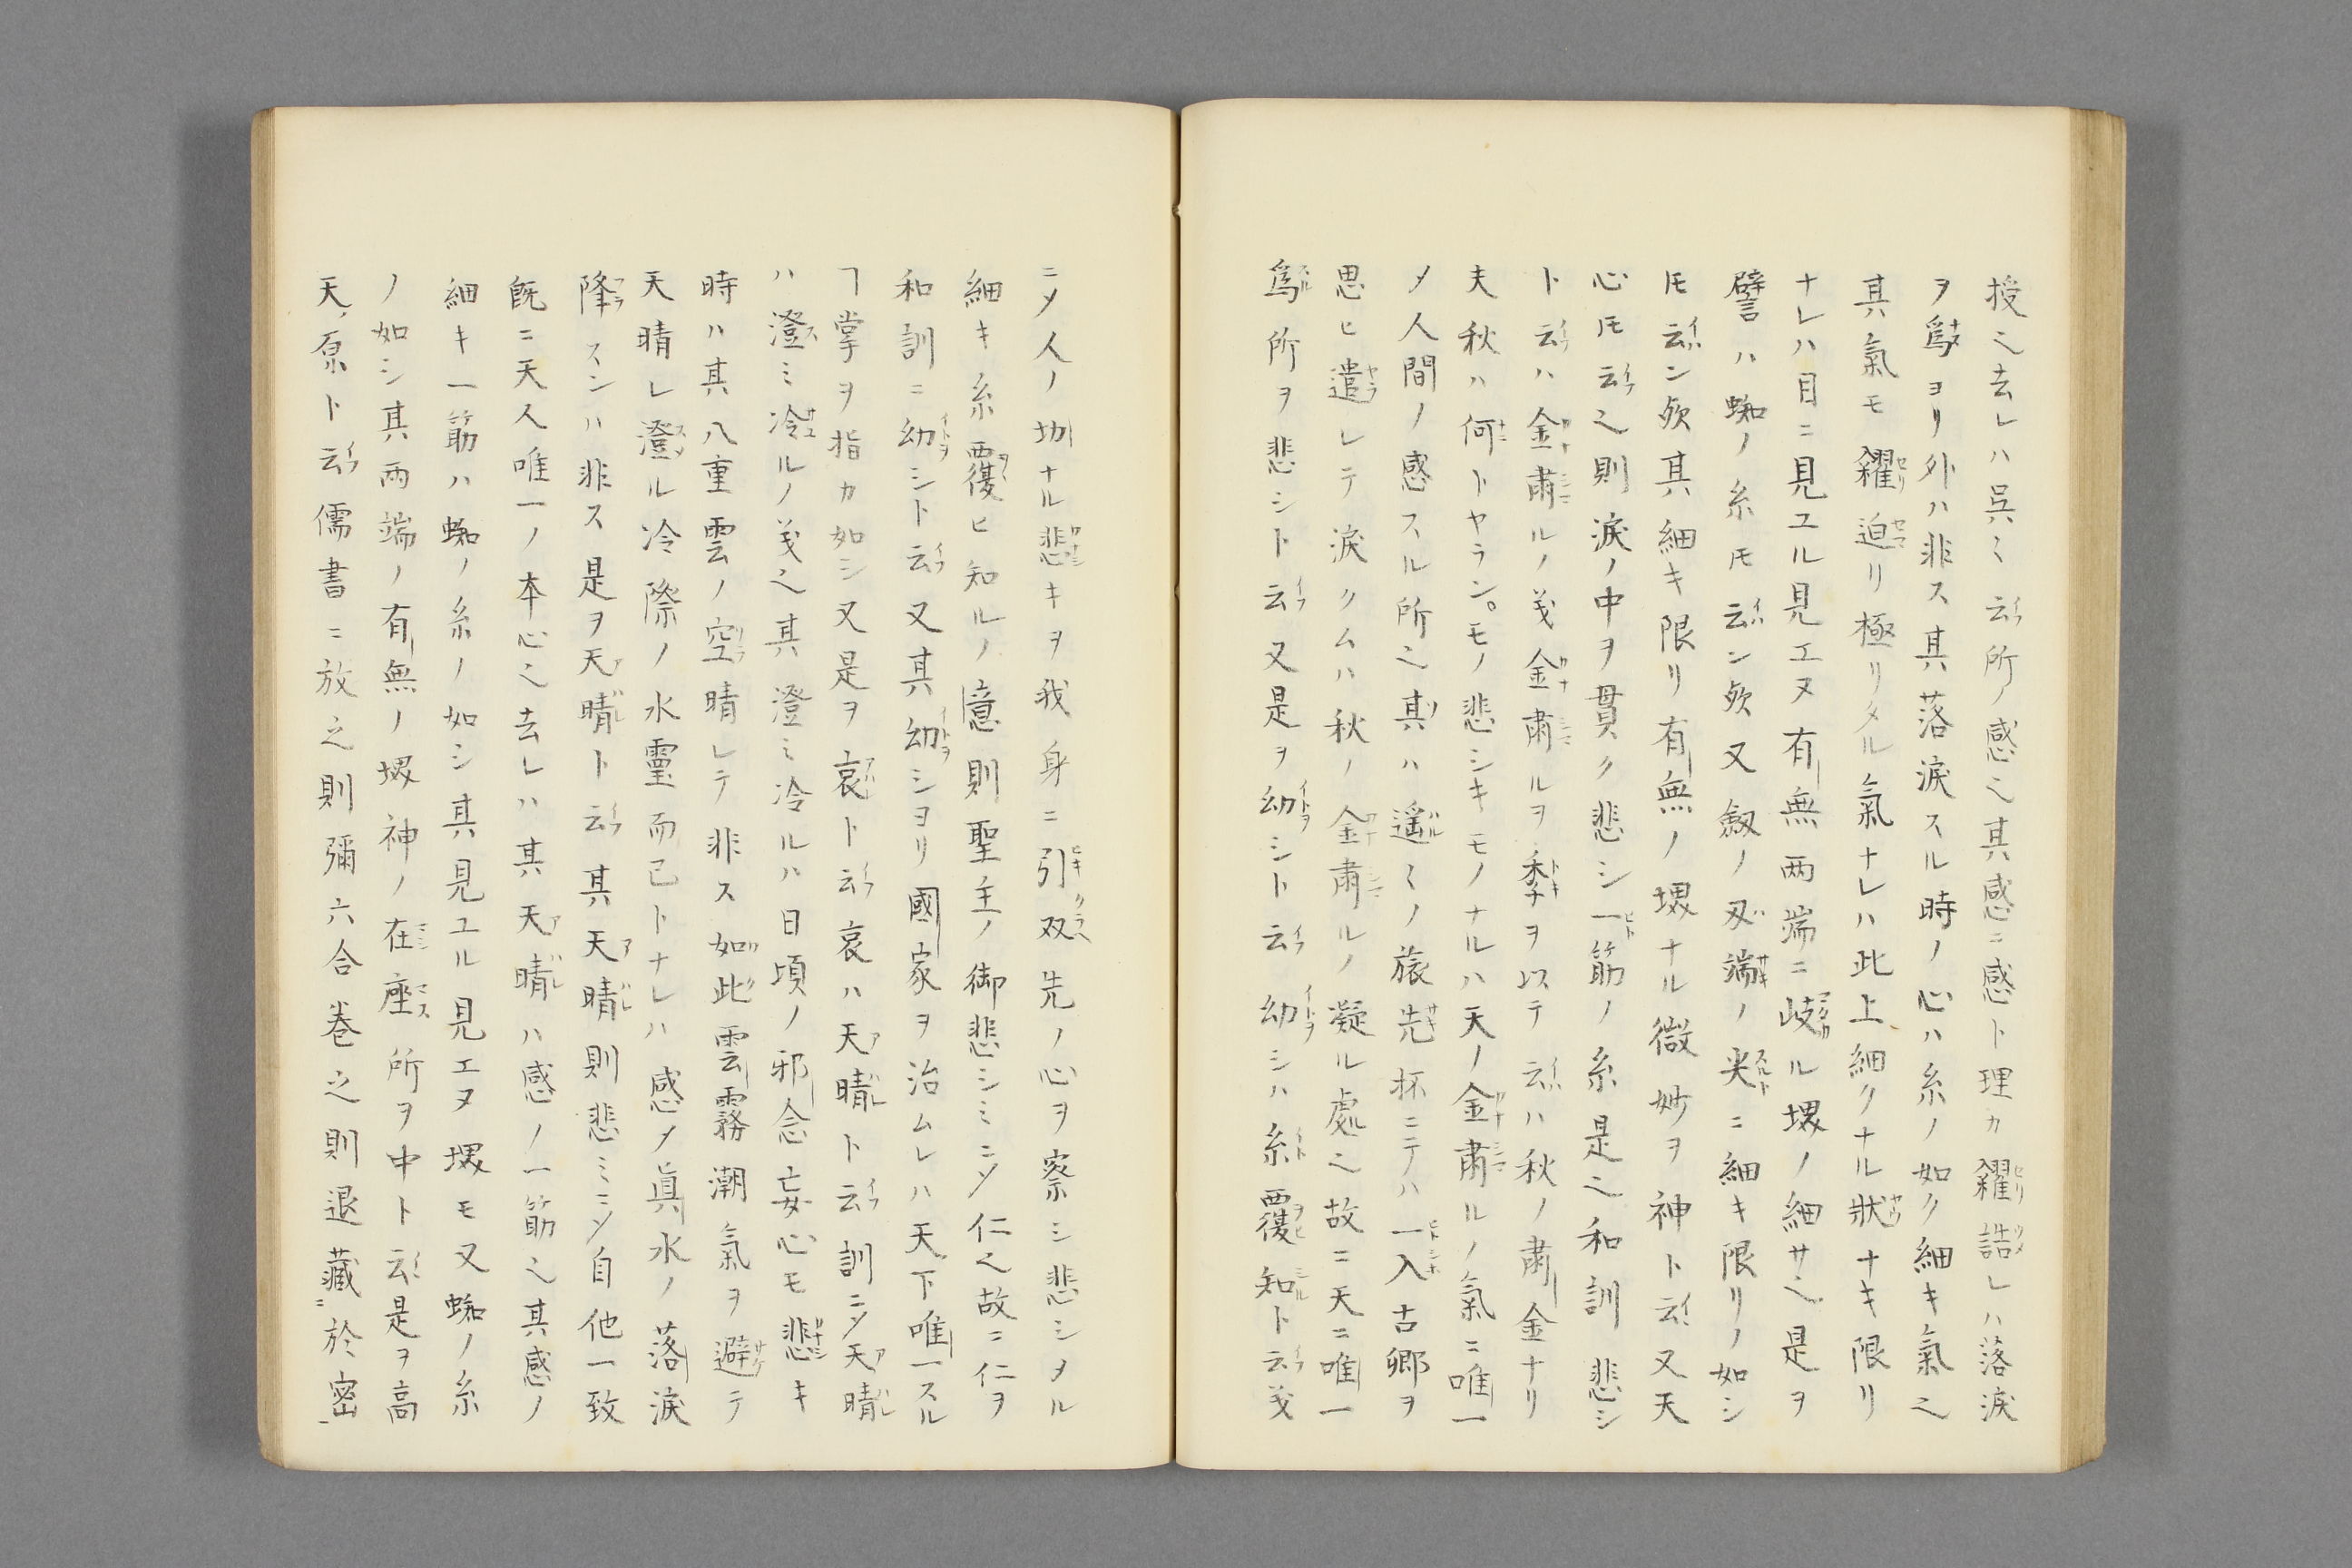 授之去レハ呉〻云所ノ感之其感ニ感ト理カ糴詰レハ落涙
ヲ爲ヨリ外ハ非ス其落涙スル時ノ心ハ糸ノ如ク細キ氣之
其氣モ糴迫リ極リタル氣ナレハ此上細クナル狀ナキ限リ
ナレハ目ニ見ユル見エヌ有無两端ニ岐ル堺ノ細サ之是ヲ
譬ハ蜘ノ糸モ云ン欤又劔ノ刄端ノ尖ニ細キ限リノ如シ
モ云ン欤其細キ限リ有無ノ堺ナル微妙ヲ神ト云又天
心モ云之則涙ノ中ヲ貫ク悲シ一筋ノ糸是之和訓悲シ
ト云ハ金肅ルノ義金肅ルヲ季ヲ以テ云ハ秋ノ肅金ナリ
夫秋ハ何トヤラン。モノ悲シキモノナルハ天ノ金肅ルノ氣ニ唯一
メ人間ノ感スル所之其ハ遥〻ノ旅先抔ニテハ一入古郷ヲ
思ヒ遣レテ涙クムハ秋ノ金肅ルノ凝ル處之故ニ天ニ唯一
爲所ヲ悲シト云又是ヲ幼シト云幼シハ糸覆知ト云義
ニメ人ノ切ナル悲キヲ我身ニ引双先ノ心ヲ察シ悲シタル
細キ糸覆ヒ知ルノ憶則聖主ノ御悲シミニメ仁之故ニ仁ヲ
和訓ニ幼シト云又其幼シヨリ國家ヲ治ムレハ天下唯一スル
ヿ掌ヲ指カ如シ又是ヲ哀ト云哀ハ天晴ト云訓ニメ天晴
ハ澄ミ冷ルノ義之其澄ミ冷ルハ日頃ノ邪念妄心モ悲キ
時ハ其八重雲ノ空晴レテ非ス如此雲霧潮氣ヲ避テ
天晴レ澄ル冷際ノ水靈而已トナレハ感メ眞水ノ落涙
降スンハ非ス是ヲ天晴ト云其天晴則悲ミニメ自他一致
既ニ天人唯一ノ本心之去レハ其天晴ハ感ノ一筋之其感ノ
細キ一筋ハ蜘ノ糸ノ如シ其見ユル見エヌ堺モ又蜘ノ糸
ノ如シ其両端ノ有無ノ堺神ノ在座所ヲ中ト云是ヲ高
天原ト云儒書ニ放之則彌六合巻之則退藏於密